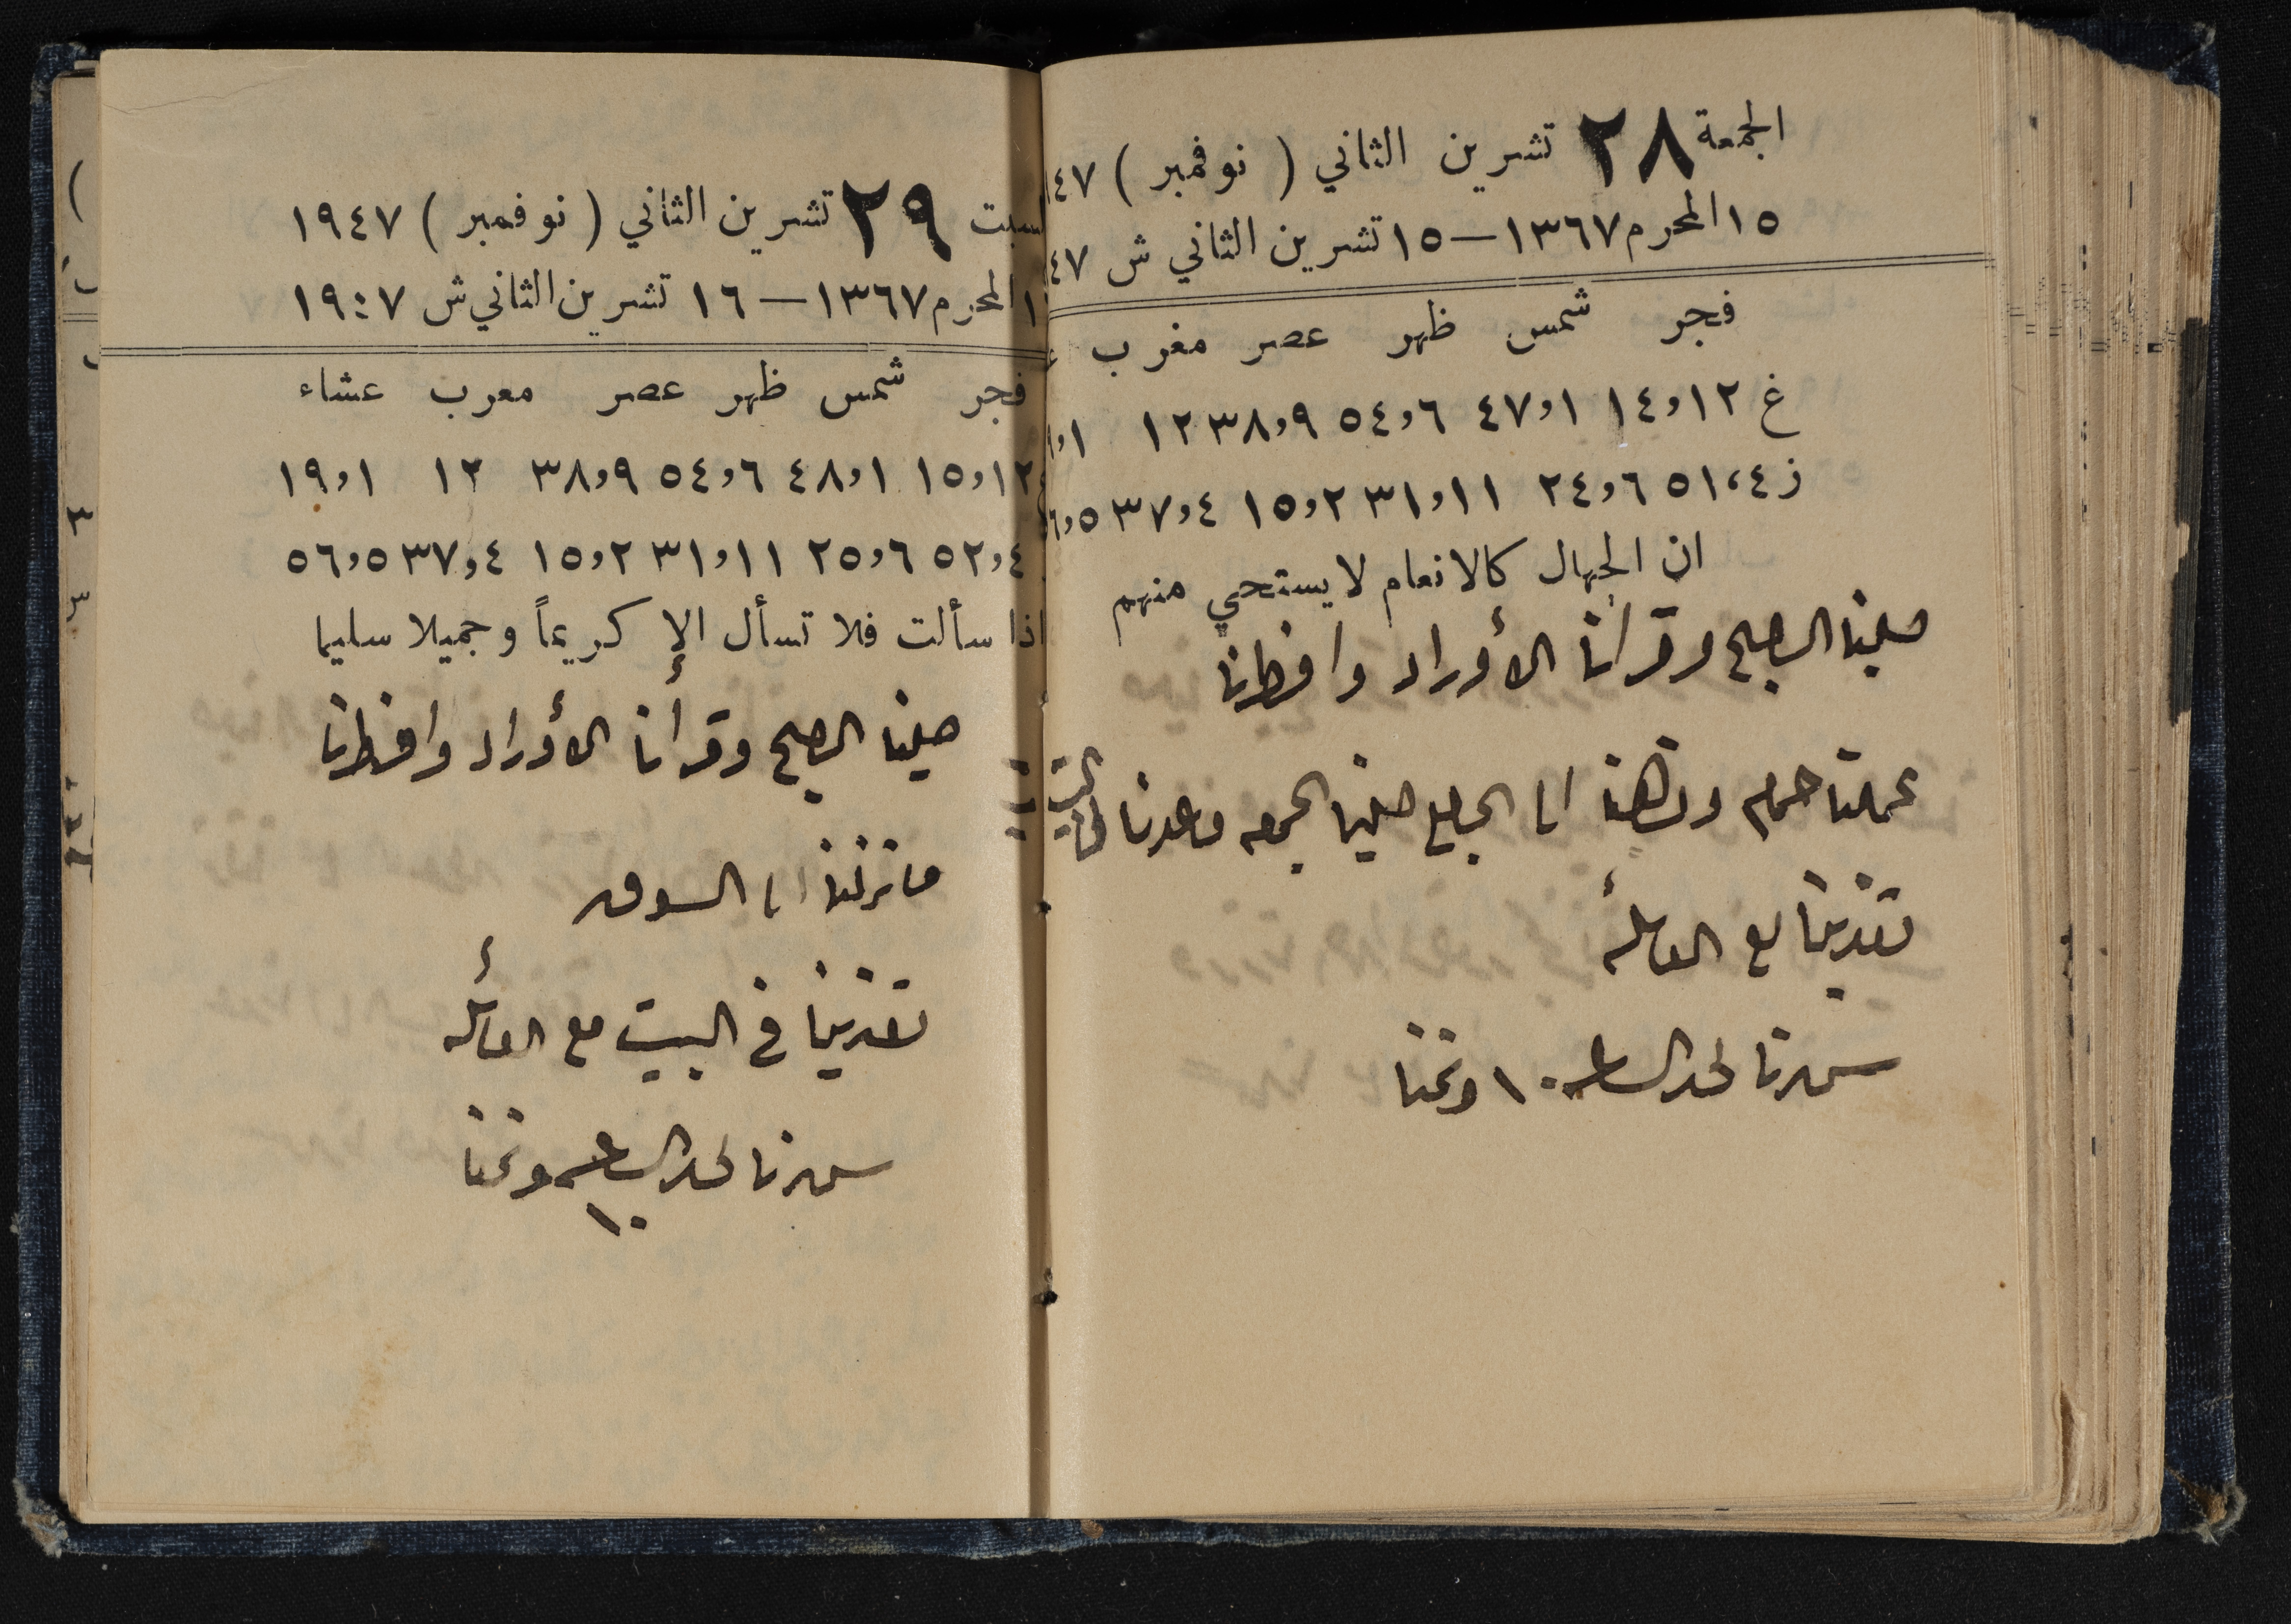 الجمعة ٢٨ تشرين الثاني ( نوفمبر ) ١٤٧
١٥ المحرم ١٣٦٧ — ١٥ تشرين الثاني ش ٤٧
فجر شمس ظهر عصر مغرب
غ ١٢و١٤ ١و٤٧ ٦و٥٤ ٩و٣٨ ١٢ ١و
ز ٤،٥١ ٦و٢٤ ١١و٣١ ٢و١٥ ٤و٣٧ ٥و٦
ان الجهال كالانعام لا يستحي منهم
صلينا الصبح وقرأنا الأوراد وافطرنا
عملنا حمام وذهبنا الى الجامع صلينا الجمعه وعدنا الى البيت
تغدينا مع العائله
سهرنا لحد الساعه ١٠ ونمنا
لسبت ٢٩ تشرين الثاني ( نوفمبر ) ١٩٤٧
١ المحرم ١٣٦٧ — ١٦ تشرين الثاني ش ١٩٤٧
فجر شمس ظهر عصر مغرب عشاء
١٢و١٥ ١و٤٨ ٦و٥٤ ٩و٣٨ ١٢ ١و١٩
٤و٥٢ ٦و٢٥ ١١و٣١ ٢و١٥ ٤و٣٧ ٥و٥٦
اذا سألت فلا تسأل الا كريماً وجميلا سليما
صلينا الصبح وقرأنا الأوراد وافطرنا
ما نزلنا الى السوق
تغدينا في البيت مع العائله
سهرنا لحد الساعه ١٠ ونمنا